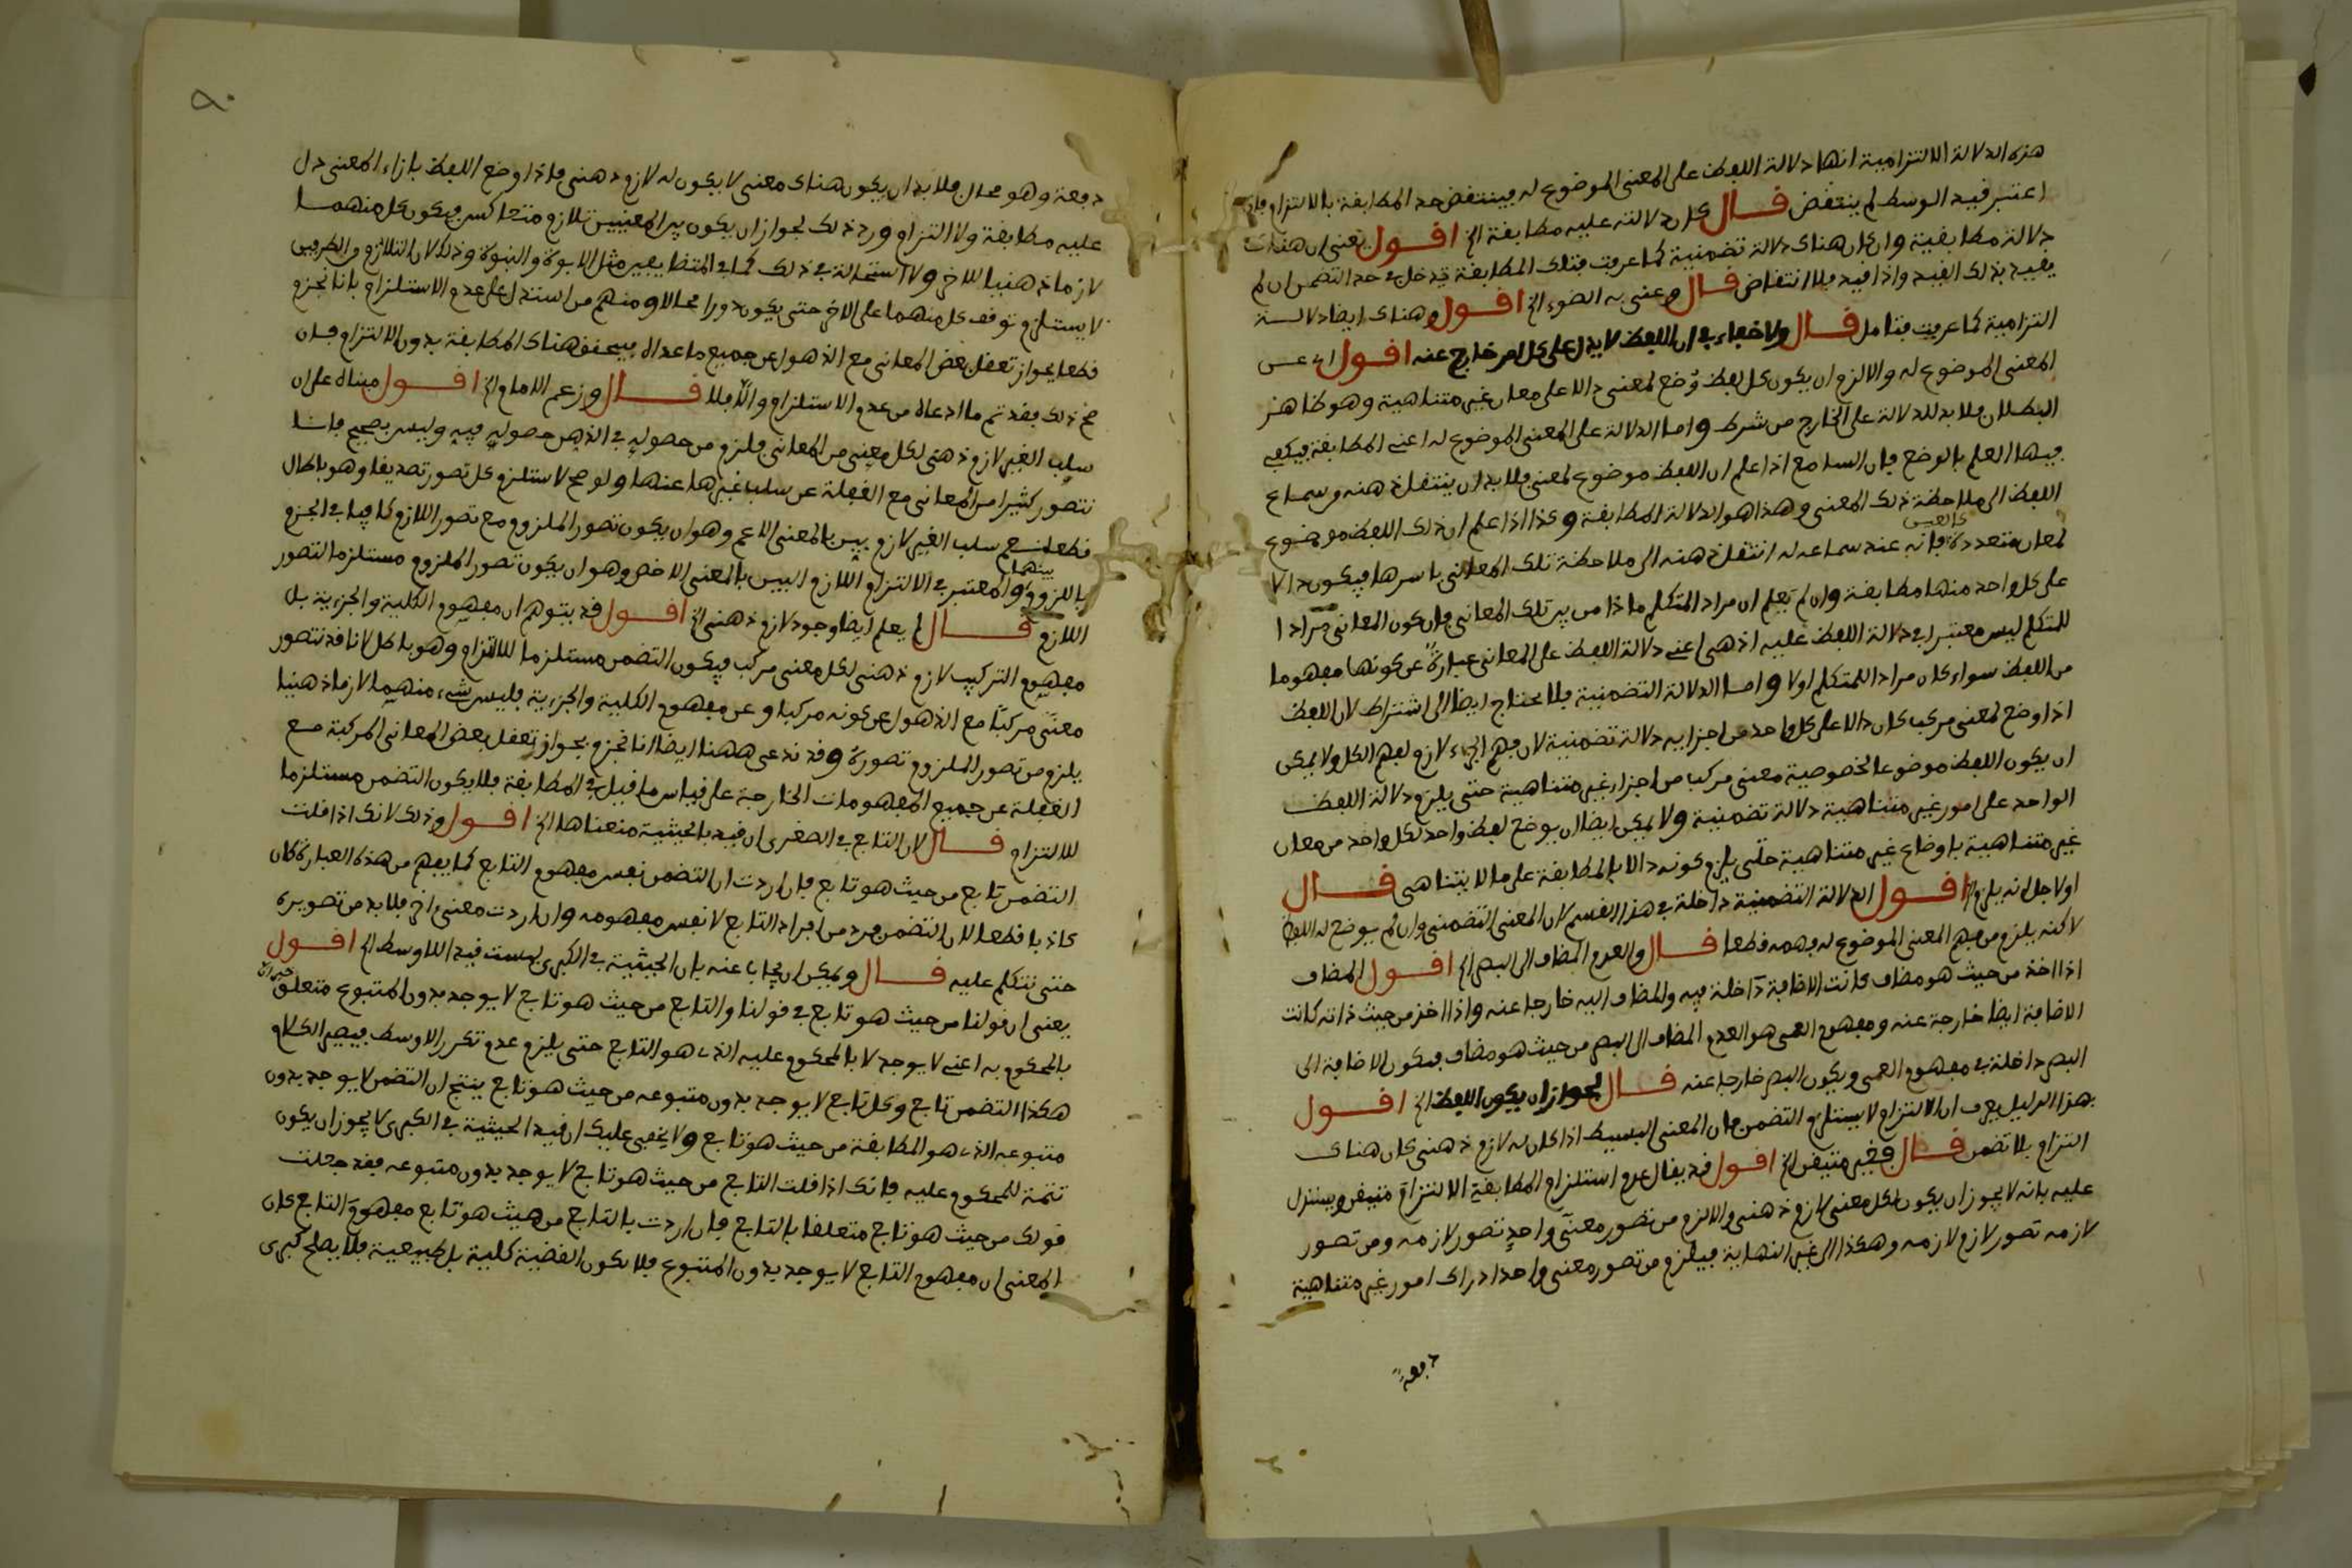 هذه الدلالة الالتزامية انها دلالة اللفظ على المعنى الموضوع له فينتقض حد المطابقة بالالتزام فان
اعتبر قيد الوسط لم ينتقض قال كان دلالته عليه مطابقة الخ اقول يعنى ان هناك
دلالة مطابقية وان كان هناك دلالة تضمنية كما عرفت فتلك المطابقة تدخل في حد التضمن ان لم
يقيد بذلك القيد واذا قيد فلا انتقاض قال وعنى به الضوء الخ اقول وهناك ايضا دلالة
التزامية كما عرفت فتامل قال ولا خفاء في ان اللفظ لا يدل على كل امر خارج عنه اقول اى عن
المعنى الموضوع له والا لزم ان يكون كل لفظ وُضع لمعنى دالا على معان غير متناهية وهو ظاهر
البطلان فلا بد للدلالة على الخارج من شرط واما الدلالة على المعنى الموضوع له اعنى المطابقة فيكفى
فيها العلم بالوضع فان السامع اذا علم ان اللفظ موضوع لمعنى فلا بد ان ينتقل ذهنه من سماع
اللفظ الى ملاحظة ذلك المعنى وهذا هو الدلالة المطابقة وكذا اذا علم ان ذلك اللفظ موضوع
لمعان متعددة كالعين فانه عند سماعه له انتقل ذهنه الى ملاحظة تلك المعانى باسرها فيكون دالا
على كل واحد منها مطابقة وان لم يعلم ان مراد المتكلم ماذا من بين تلك المعانى فان كون المعانى مرادا
للمتكلم ليس معتبرا في دلالة اللفظ عليه اذ هى اعنى دلالة اللفظ على المعانى عبارة عن كونها مفهوما
من اللفظ سواء كان مرادا للمتكلم اولا واما الدلالة التضمنية فلا يحتاج ايضا الى اشتراط لان اللفظ
اذا وضع لمعنى مركب كان دالا على كل واحد من اجزايه دلالة تضمنية لان فهم الجزء لازم لفهم الكل ولا يمكن
ان يكون اللفظ موضوعا لخصوصية معنى مركب من اجزاء غير متناهية حتى يلزم دلالة اللفظ
الواحد على امور غير متناهية دلالة تضمنية ولا يمكن ايضا ان يوضع لفظ واحد لكل واحد من معان
غير متناهية باوضاع غير متناهية حتى يلزم كونه دالا بالمطابقة على ما لا يتناهى قال
اولاجل انه يلزم الخ اقول الدلالة التضمنية داخلة في هذا القسم لان المعنى التضمنى وان لم يوضع له اللفظ
لاكنه يلزم من فهم المعنى الموضوع له فهمه قطعا قال والعدم المضاف الى البصر الخ اقول المضاف
اذا اخذ من حيث هو مضاف كانت الاضافة داخلة فيه والمضاف اليه خارجا عنه واذا اخذ من حيث ذاته كانت
الاضافة ايضا خارجة عنه ومفهوم العمى هو العدم المضاف الى البصر من حيث هو مضاف فيكون الاضافة الى
البصر داخلة في مفهوم العمى ويكون البصر خارجا عنه قال لجواز ان يكون اللفظ الخ اقول
بهذا الدليل يعرف ان الالتزام لا يستلزم التضمن فان المعنى البسيط اذا كان له لازم ذهنى كان هناك
التزام بلا تضمن قال فغير متيقن الخ اقول قد يقال عدم استلزام المطابقة الالتزام متيقن ويستدل
عليه بانه لا يجوز ان يكون لكل معنى لازم ذهنى والا لزم من تصور معنًى واحدٍ تصور لازمه ومن تصور
لازمه تصور لازم لازمه وهكذا الى غير النهاية فيلزم من تصور معنى واحد ادراك امور غير متناهية
دفعة
٩٠
دفعة وهو محال فلا بد ان يكون هناك معنى لا يكون له لازم ذهنى فاذا وضع اللفظ بازاء المعنى دل
عليه مطابقة ولا التزام ورد ذلك لجواز ان يكون بين المعنيين تلازم متعاكس فيكون كل منهما
لازما ذهنيا للاخر ولا استحالة في ذلك كما في المتضايفين مثل الابوة والبنوة وذلك لان التلازم من الطرفين
لا يستلزم توقف كل منهما على الاخر حتى يكون دورا محالا ومنهم من استدل على عدم الاستلزام بانا نجزم
قطعا بجواز تعقل بعض المعانى مع الذهول عن جميع ما عداه فيتحقق هناك المطابقة بدون الالتزام فان
صح ذلك فقد تم ما ادعاه من عدم الاستلزام والا فلا قال وزعم الامام الخ اقول مبناه على ان
سلب الغير لازم ذهنى لكل معنى من المعانى فلزم من حصوله في الذهن حصوله فيه وليس بصحيح فانا
نتصور كثيرا من المعانى مع الغفلة عن سلب غيرها عنها ولو صح لاستلزم كل تصور تصديقا وهو باطل
قطعا نعم سلب الغير لازم بين بالمعنى الاعم وهو ان يكون تصور الملزوم مع تصور اللازم كافيا في الجزم
باللزوم بينهما والمعتبر في الالتزام اللازم البين بالمعنى الاخص وهو ان يكون تصور الملزوم مستلزما لتصور
اللازم قال لم يعلم ايضا وجود لازم ذهنى الخ اقول قد يتوهم ان مفهوم الكلية والجزءية بل
مفهوم التركيب لازم ذهنى لكل معنى مركب فيكون التضمن مستلزما للالتزام وهو باطل لانا قد نتصور
معنًى مركبًا مع الذهول عن كونه مركبا وعن مفهوم الكلية والجزءية فليس شىء منهما لازما ذهنيا
يلزم من تصور الملزوم تصوره وقد ندعى ههنا ايضا انا نجزم بجواز تعقل بعض المعانى المركبة مع
الغفلة عن جميع المفهومات الخارجة على قياس ما قيل في المطابقة فلا يكون التضمن مستلزما
للالتزام قال لان التابع في الصغرى ان قيد بالحيثية منعناها الخ اقول وذلك لانك اذا قلت
التضمن تابع من حيث هو تابع فان اردت ان التضمن نفس مفهوم التابع كما يفهم من هذه العبارة كان
كاذبا قطعا لان التضمن فرد من افراد التابع لا نفس مفهومه وان اردت معنى اخر فلا بد من تصويره
حتى نتكلم عليه قال ويمكن ان يجاب عنه بان الحيثية في الكبرى ليست قيدا للاوسط الخ اقول
يعنى ان قولنا من حيث هو تابع في قولنا والتابع من حيث هو تابع لا يوجد بدون المتبوع متعلق
بالمحكوم به اعنى لا يوجد لا بالمحكوم عليه الذى هو التابع حتى يلزم عدم تكرر الاوسط فيصير الكلام
هكذا التضمن تابع وكل تابع لا يوجد بدون متبوعه من حيث هو تابع ينتج ان التضمن لا يوجد بدون
متبوعه الذى هو المطابقة من حيث هو تابع ولا يخفى عليك ان قيد الحيثية في الكبرى لا يجوز ان يكون
تتمة للمحكوم عليه فانك اذا قلت التابع من حيث هو تابع لا يوجد بدون متبوعه فقد جعلت
قولك من حيث هو تابع متعلقا بالتابع فان اردت بالتابع من حيث هو تابع مفهوم التابع كان
المعنى ان مفهوم التابع لا يوجد بدون المتبوع فلا تكون القضية كلية بل طبيعية فلا يصلح كبرى